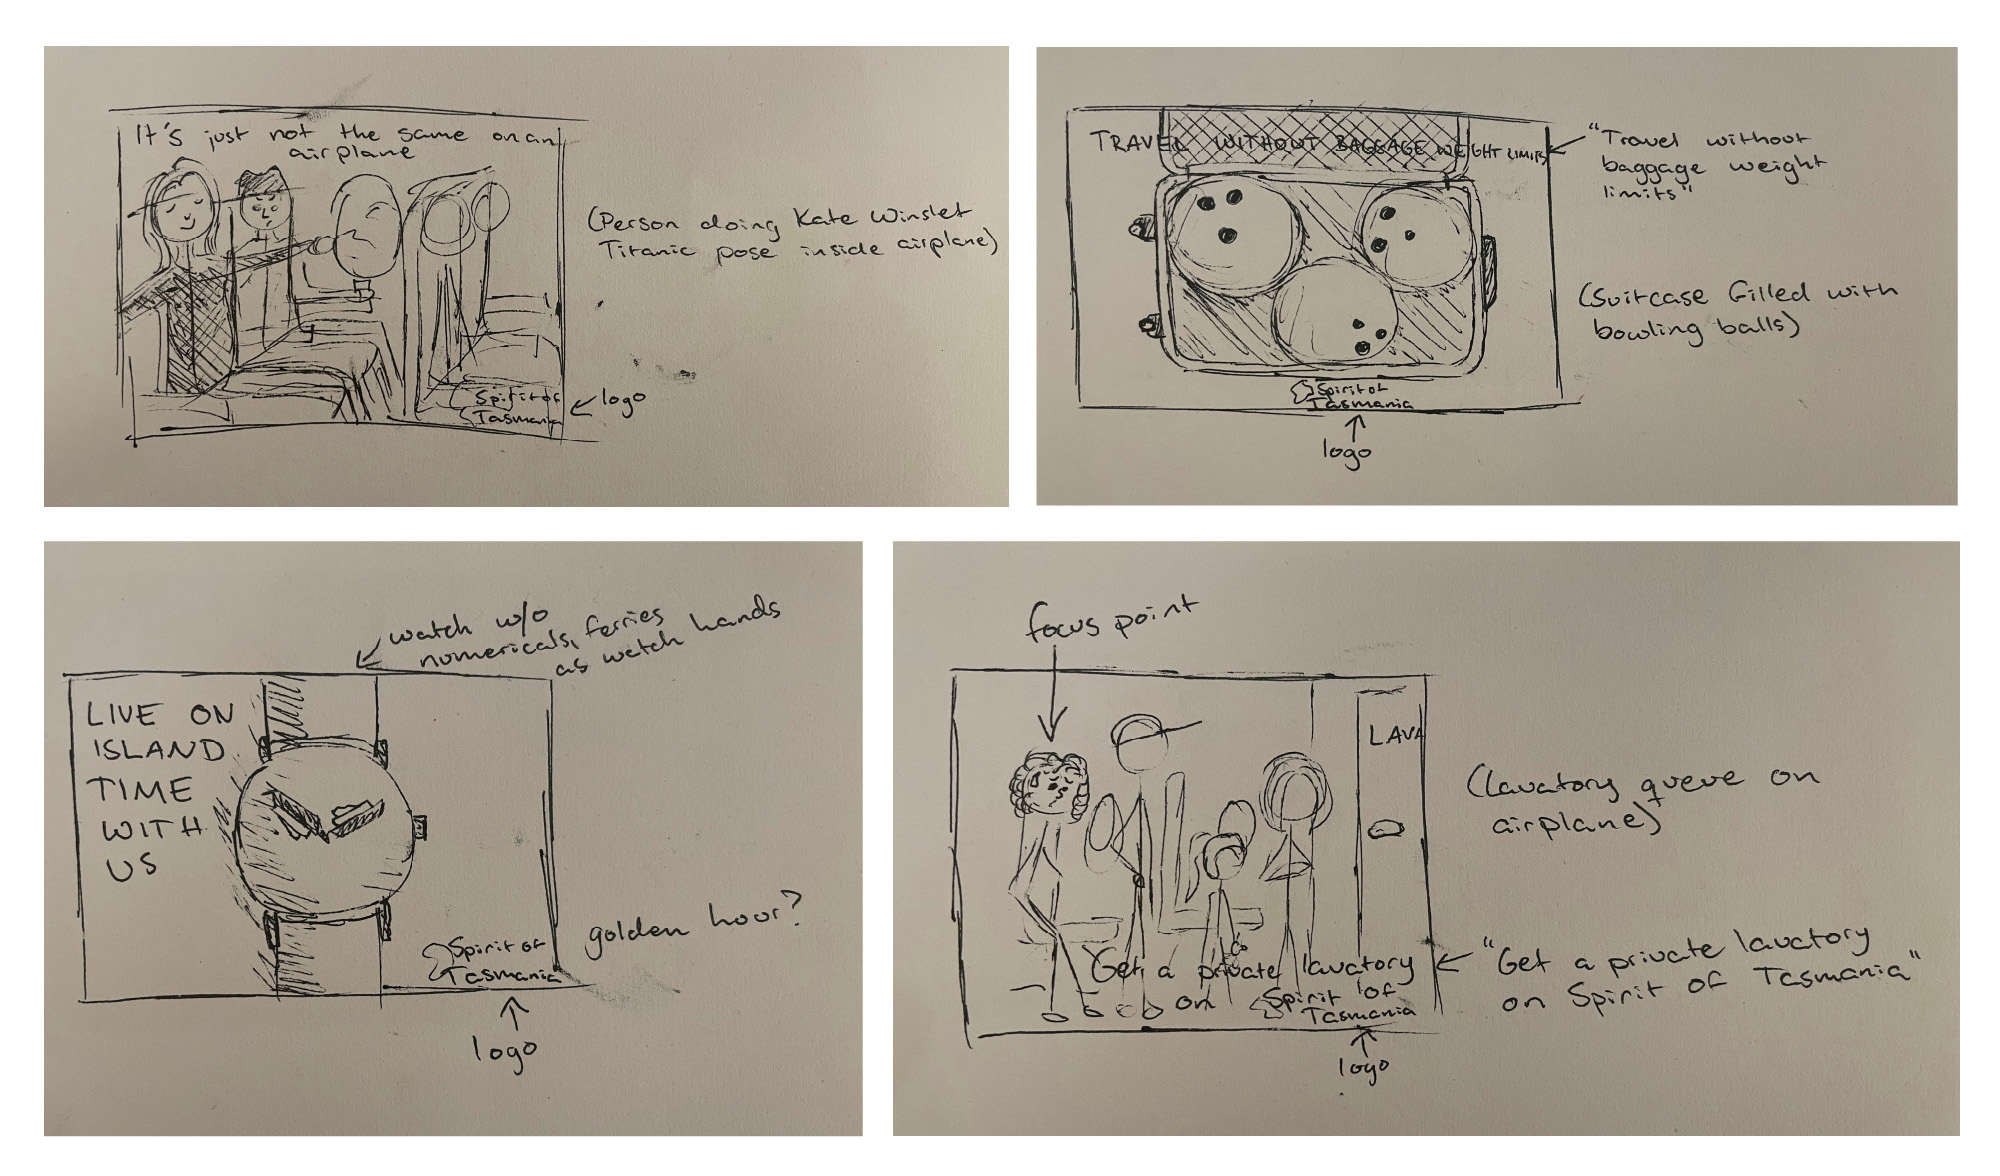 It's just not the same on an
airplane
(Person doing Kate Winslet
Titanic pose inside airplane)
Spirit of
Tasmania
logo
TRAVEL WITHOUT BAGGAGE WEIGHT LIMITS
"Travel without
baggage weight
limits"
(Suitcase filled with
bowling balls)
Spirit of
Tasmania
logo
watch w/o
numericals, ferries
as watch hands
LIVE ON
ISLAND
TIME
WITH
US
golden hour?
Spirit of
Tasmania
logo
focus point
LAVA
(lavatory queue on
airplane)
Get a private lavatory
on Spirit of
Tasmania
"Get a private lavatory
on Spirit of Tasmania"
logo